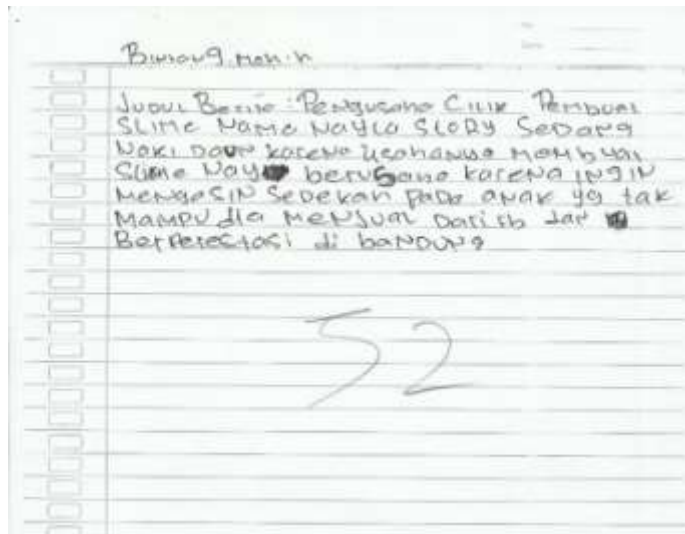 Bintang.Moh.h
Judul Berita: Pengusaha Cilik Pembuat
Slime Nama Nayla Slody Sedang
Naki Daun karena usahanya Membuat
Slime Nay berusaha karena ingin
Mengasin Sedekah pada anak yg tak
Mampu dia Menjual Dari Rb dar
Berperestasi di bandung
52